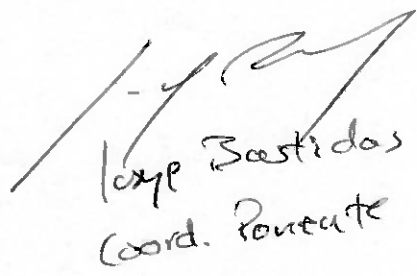 Jorge Bastidas
Coord. Ponente